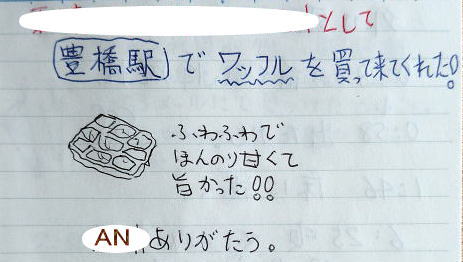 として
豊橋駅でワッフルを買って来てくれた!
ふわふわで
ほんのり甘くて
旨かった!!
AN ありがたう。